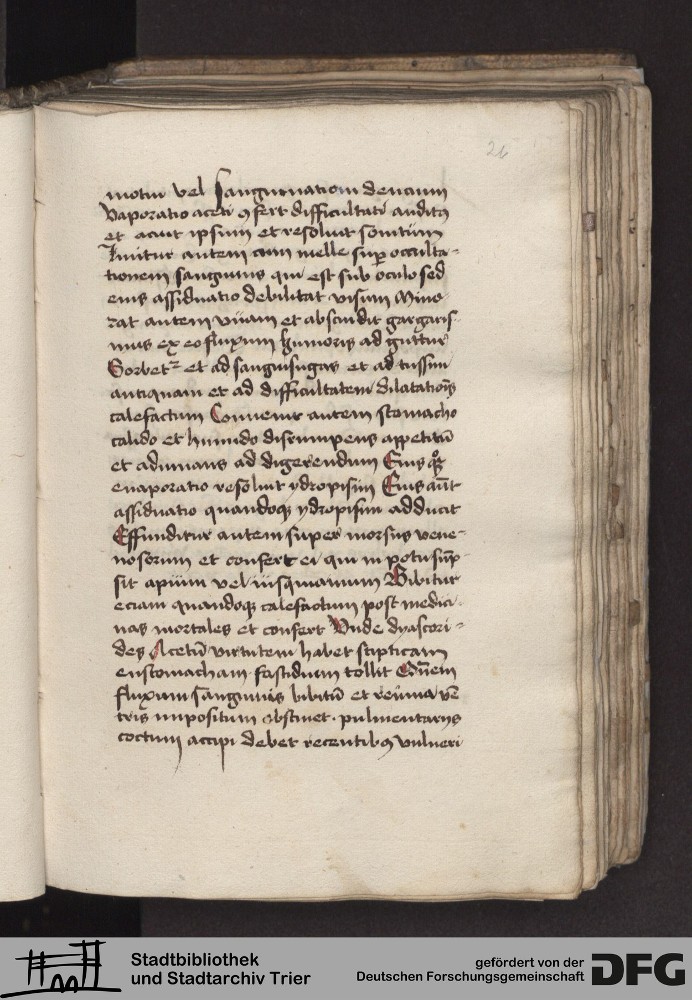 26
motui vel sanguinationi dencium
Vaporatio aceti ꝯfert difficultati auditꝯ
et acuit ipsum et resoluit sonitum
Linitur autem cum melle suꝑ occulta-
tionem sanguinis qui est sub oculo sed
eius assiduatio debilitat visum Mino-
rat autem vuam et abscindit gargaris-
mus ex eo fluxum humoris ad guttur
Sorbetᷣ et ad sanguisugas et ad tussim
antiquam et ad difficultatem dilatationis
calefactum Conuenit autem stomacho
calido et humido disrumpens appetitū
et adiuuans ad digerendum Eiusqꝫ
euaporatio resoluit ydropisim Eius aūt
assiduatio quandoqꝫ ydropisim adducit
Effunditur autem super morsus vene-
nosorum et confert ei qui in potu sūp-
sit apium vel iusquiamum Bibitur
eciam quandoqꝫ calefactum post medici-
nas mortales et confert Vnde dyascori-
des Acetū virtutem habet stipticam
eustomacham fastidium tollit Omnem
fluxum sanguinis bibitū et reūma vē-
tris impositum obstinet. pulmentarijs
coctum accipi debet recentibꝯ vulneri
Stadtbibliothek
und Stadtarchiv Trier
gefördert von der
Deutschen Forschungsgemeinschaft
DFG